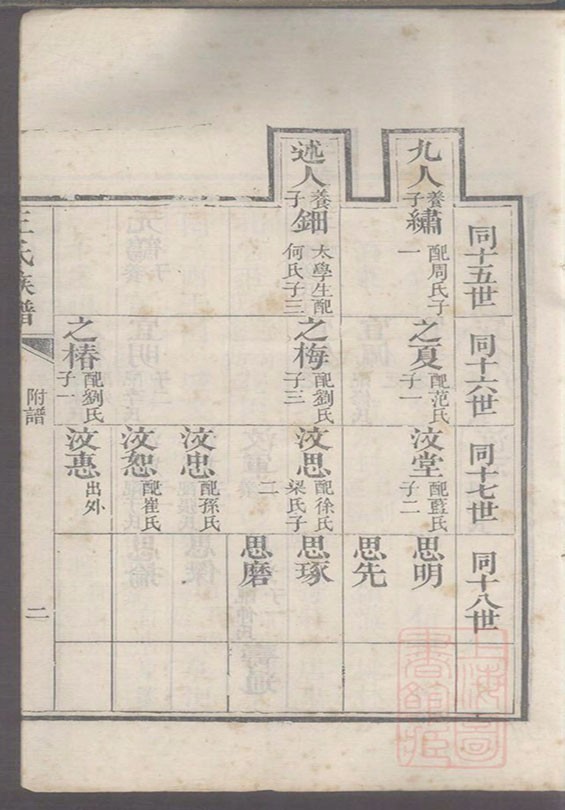 同十五世
同十六世
同十七世
同十八世
九人養子繡配周氏子一
之夏配范氏子一
汶堂配藍氏子二
思明
思先
述人養子鈿太學生配何氏子三
之梅配劉氏子三
汶思配徐氏梁氏子二
思琢
思磨
汶忠配孫氏
汶恕配崔氏
之椿配劉氏子一
汶惠出外
王氏族譜
附譜
二
上海圖書館藏